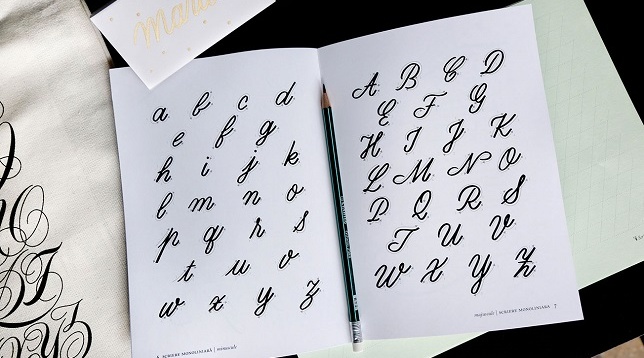 a b c d
e f g
h i j k
l m n o
p q r s
t u v
w x y z
SCRIERE MONOLINIARĂ | minuscule
A B C D
E F G
H I J K
L M N O
P Q R S
T U V
W X Y Z
majuscule | SCRIERE MONOLINIARĂ 7